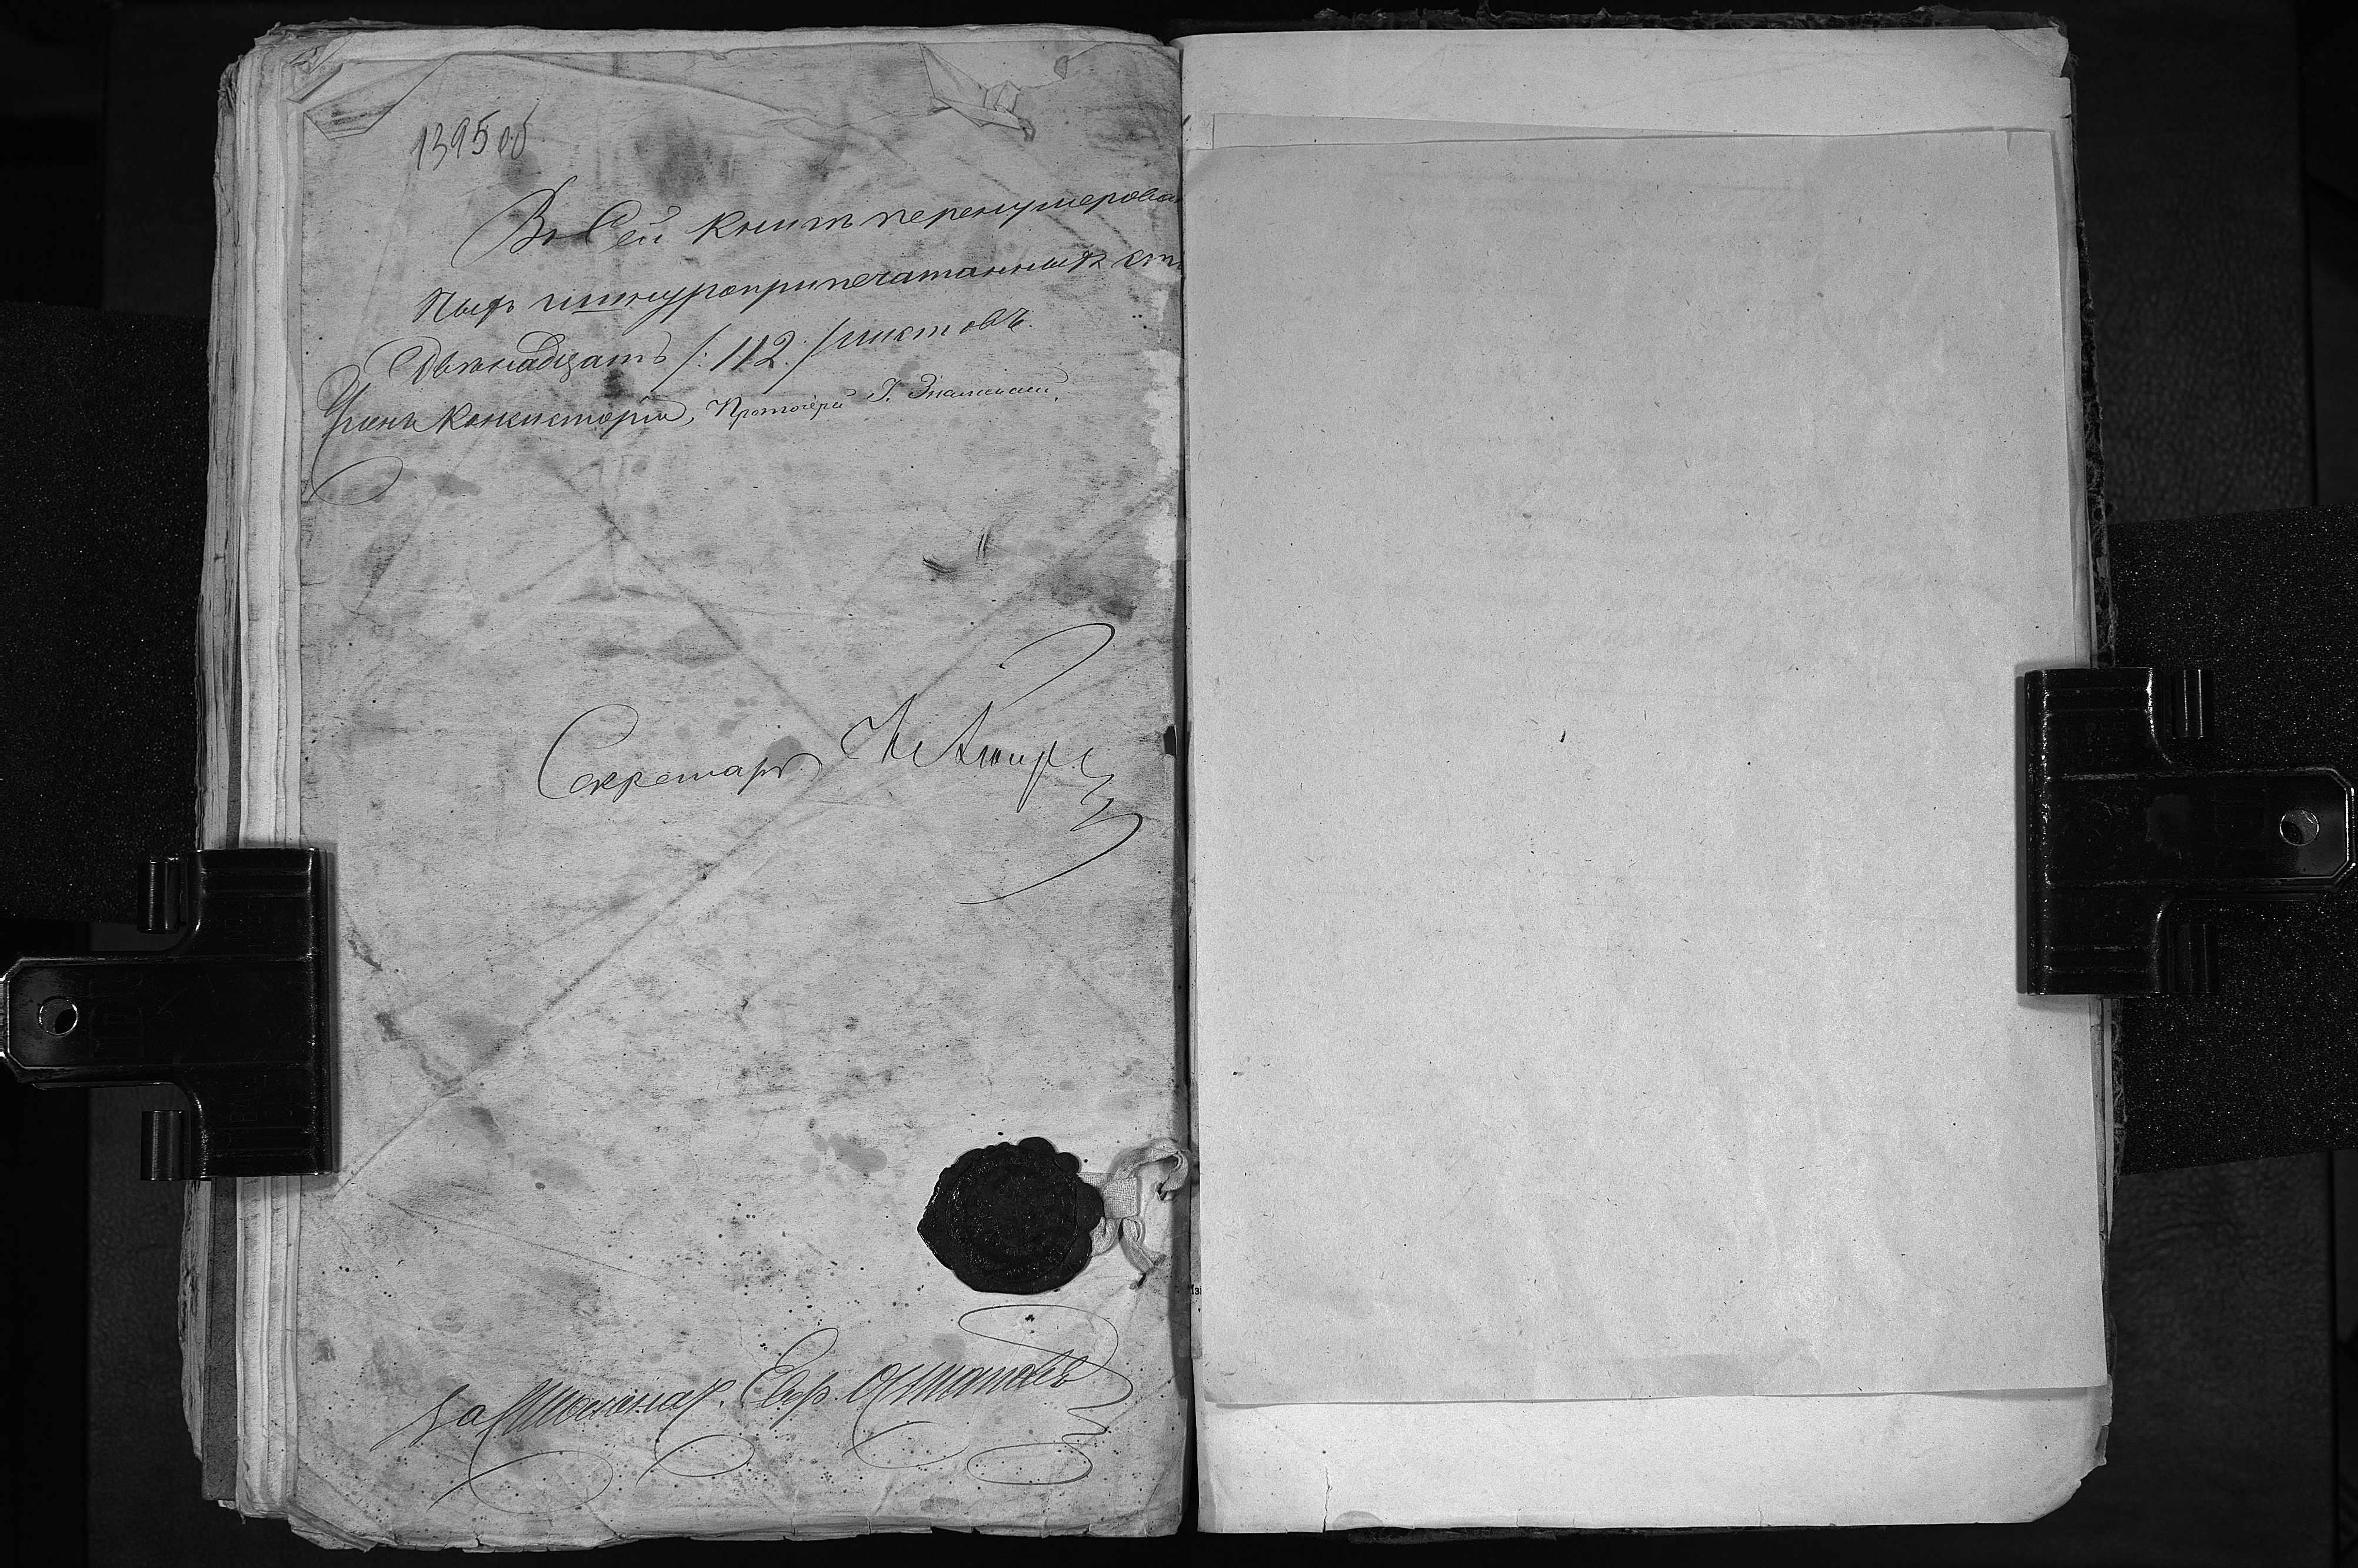 139 об
Въ Сей книгѣ перенумерован
ныхъ шнуроприпечатанныхъ сто
Двѣнадцать /:112:/ листовъ.
Членъ Консисторіи, Протоіерей І. Знаменскій.
Секретарь
За Столонач. Евф. Осиповъ